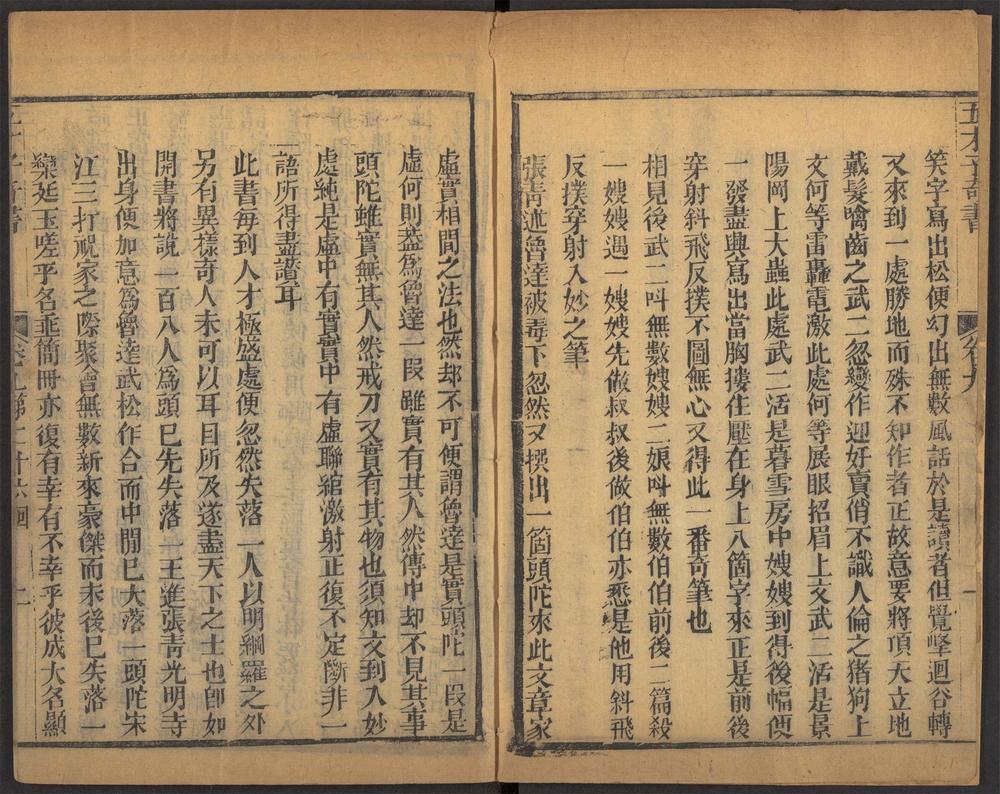 五才子奇書
卷九
一
笑字寫出松便幻出無數風話於是讀者但覺峰迴谷轉
又來到一處勝地而殊不知作者正故意要將頂天立地
戴髮噙齒之武二忽變作迎奸賣俏不識人倫之猪狗上
文何等雷轟電激此處何等展眼招眉上文武二活是景
陽岡上大蟲此處武二活是暮雪房中嫂嫂到得後幅便
一發盡興寫出當胸摟住壓在身上八個字來正是前後
穿射斜飛反撲不圖無心又得此一番奇筆也
相見後武二叫無數嫂嫂二娘叫無數伯伯前後二篇殺
一嫂嫂遇一嫂嫂先做叔叔後做伯伯亦悉是他用斜飛
反撲穿射入妙之筆
張青述魯達被毒下忽然又撰出一箇頭陀來此文章家
虛實相間之法也然却不可便謂魯達是實頭陀一段是
虛何則葢爲魯達一段雖實有其人然傳中却不見其事
頭陀雖實無其人然戒刀又實有其物也須知文到入妙
處純是虛中有實實中有虛聯綰激射正復不定斷非一
語所得盡讃耳
此書每到人才極盛處便忽然失落一人以明網羅之外
另有異樣奇人未可以耳目所及遂盡天下之士也卽如
開書將說一百八人爲頭已先失落一王進張青光明寺
出身便加意爲魯達武松作合而中間已大落一頭陀宋
江三打祝家之際聚會無數新來豪傑而末後已失落一
欒廷玉嗟乎名垂簡冊亦復有幸有不幸乎彼成大名顯
卷九第二十六回
二